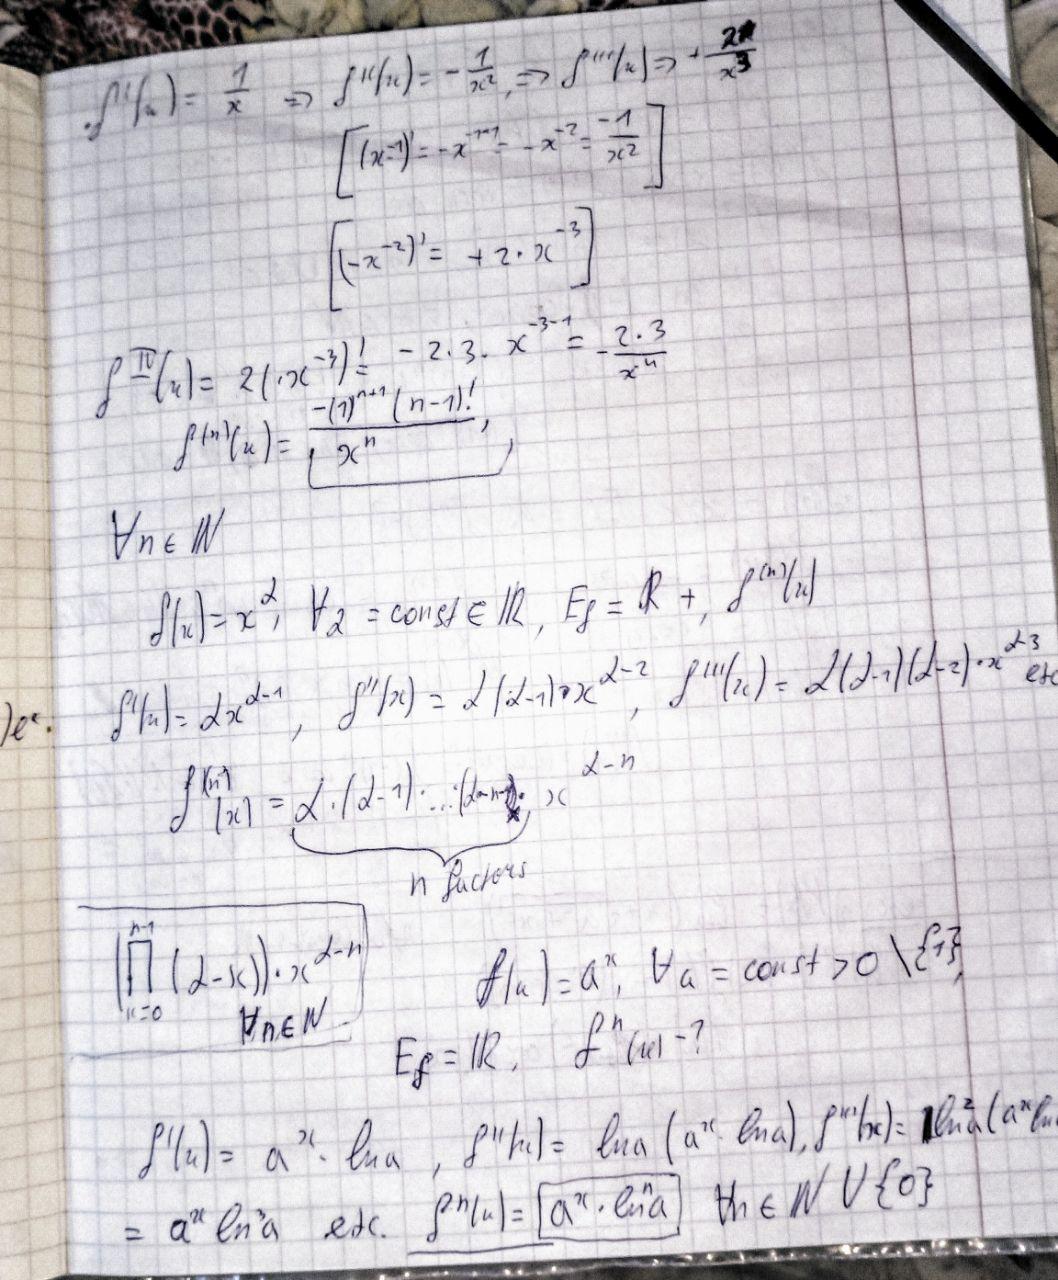 f'(x) = 1/x => f''(x) = - 1/x², => f'''(x) => + 2/x³
[(x⁻¹)' = -x⁻¹⁻¹ = -x⁻² = -1/x²]
[(-x⁻²)' = +2·x⁻³]
f^IV(x) = 2(·x⁻³)' = -2·3·x⁻³⁻¹ = - 2·3/x⁴
f⁽ⁿ⁾(x) = -(1)ⁿ⁺¹(n-1)!/xⁿ,
∀n∈ℕ
f(x) = x^α, ∀α = const ∈ ℝ, E_f = ℝ+, f⁽ⁿ⁾(x)
)eˣ.
f'(x) = αx^(α-1), f''(x) = α(α-1)·x^(α-2), f'''(x) = α(α-1)(α-2)·x^(α-3) etc
f⁽ⁿ⁾(x) = α·(α-1)·...·(α-n-1)· x^(α-n)
n factors
(∏_(k=0)^(n-1) (α-k))·x^(α-n)
∀n∈ℕ
f(x) = aˣ, ∀a = const > 0 \ {1},
E_f = ℝ, fⁿ(x) - ?
f'(x) = aˣ · ln a, f''(x) = ln a (aˣ · ln a), f'''(x) = ln²a (aˣ ln
= aˣ ln³a etc. fⁿ(x) = aˣ · lnⁿa ∀n ∈ ℕ ∪ {0}